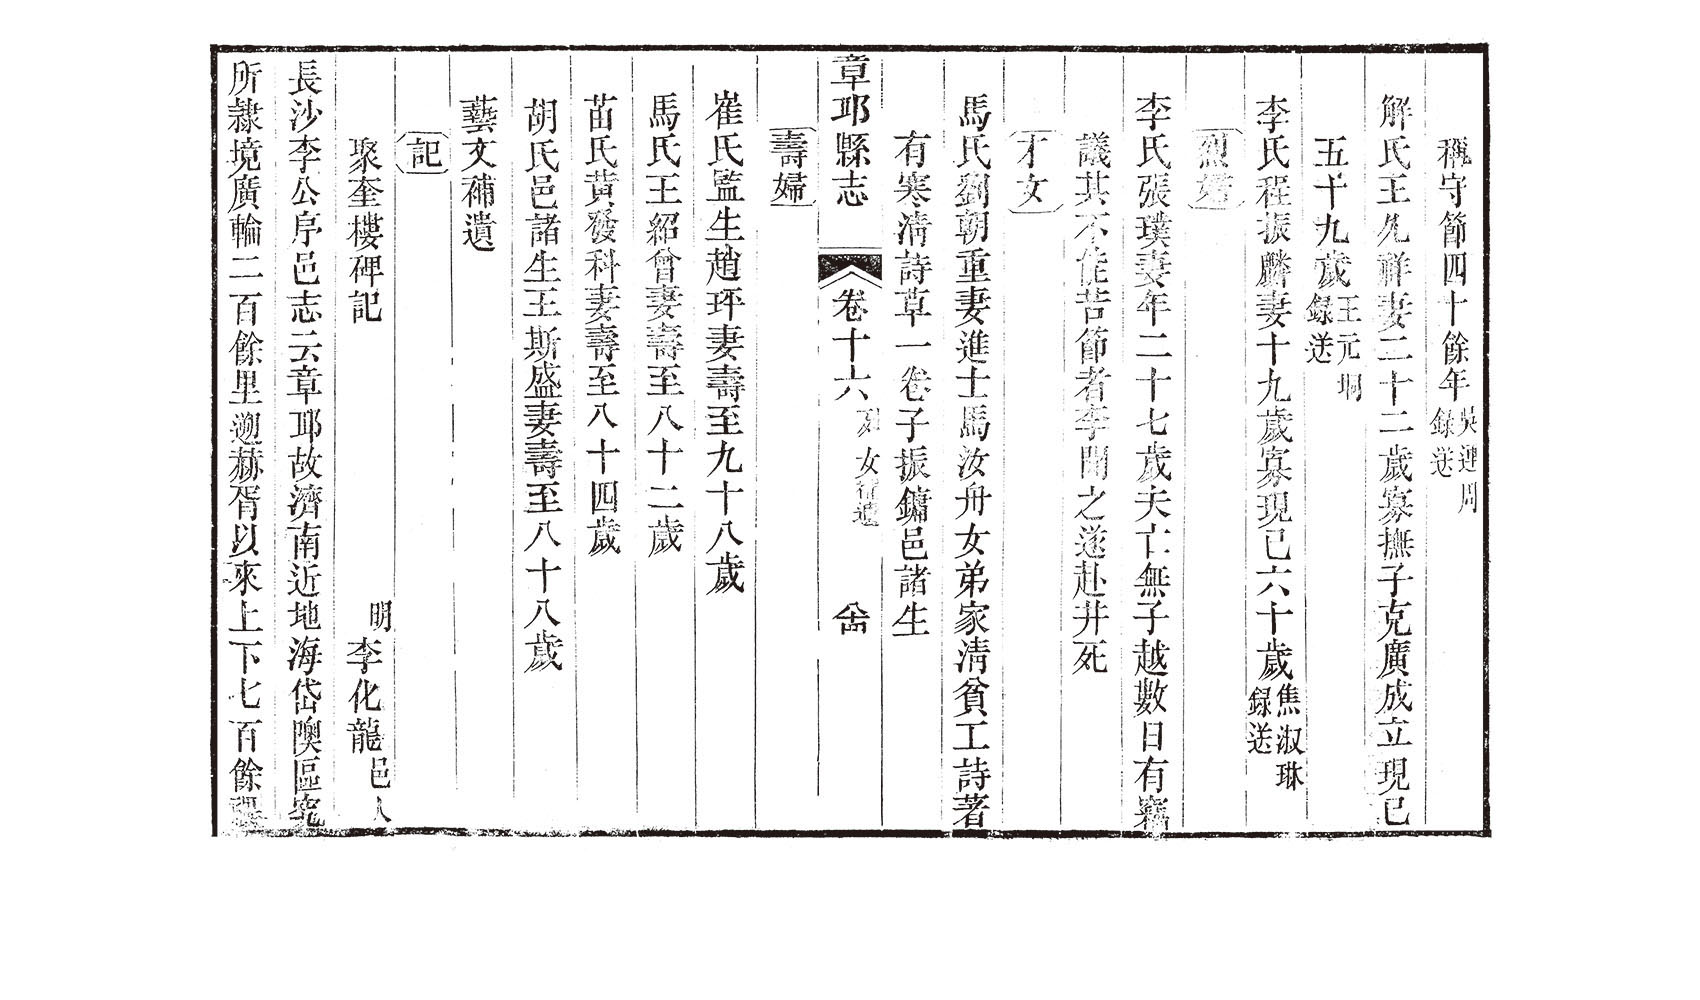 稱守節四十餘年吳連周錄送
解氏王允祥妻二十二歲寡撫子克廣成立現已
五十九歲王元坰錄送
李氏程振麟妻十九歲寡現已六十歲焦淑琳錄送
烈婦
李氏張璞妻年二十七歲夫亡無子越數日有竊
議其不能苦節者李聞之遂赴井死
才女
馬氏劉朝重妻進士馬汝舟女弟家淸貧工詩著
有寒淸詩草一卷子振鏞邑諸生
章邱縣志 卷十六 列女補遺 八十四
壽婦
崔氏監生趙玶妻壽至九十八歲
馬氏王紹曾妻壽至八十二歲
苗氏黃發科妻壽至八十四歲
胡氏邑諸生王斯盛妻壽至八十八歲
藝文補遺
記
聚奎樓碑記 明李化龍邑人
長沙李公序邑志云章邱故濟南近地海岱隩區究
所隸境廣輪二百餘里遡赫胥以來上下七百餘